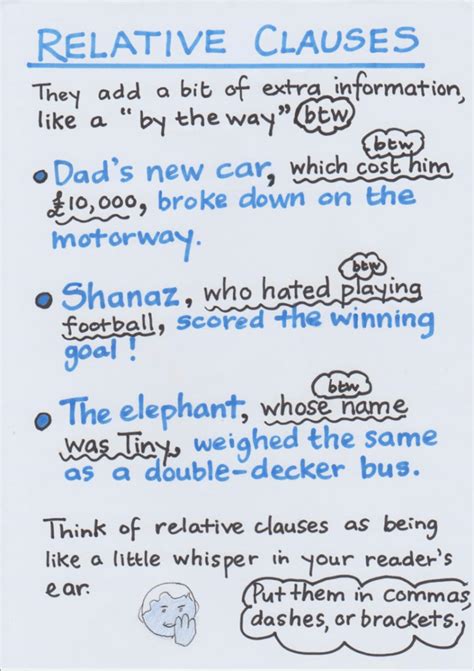 RELATIVE CLAUSES
They add a bit of extra information,
like a "by the way" btw
btw
• Dad's new car, which cost him
£10,000, broke down on the
motorway.
btw
• Shanaz, who hated playing
football, scored the winning
goal!
btw
• The elephant, whose name
was Tiny, weighed the same
as a double-decker bus.
Think of relative clauses as being
like a little whisper in your reader's
ear.
Put them in commas,
dashes, or brackets.